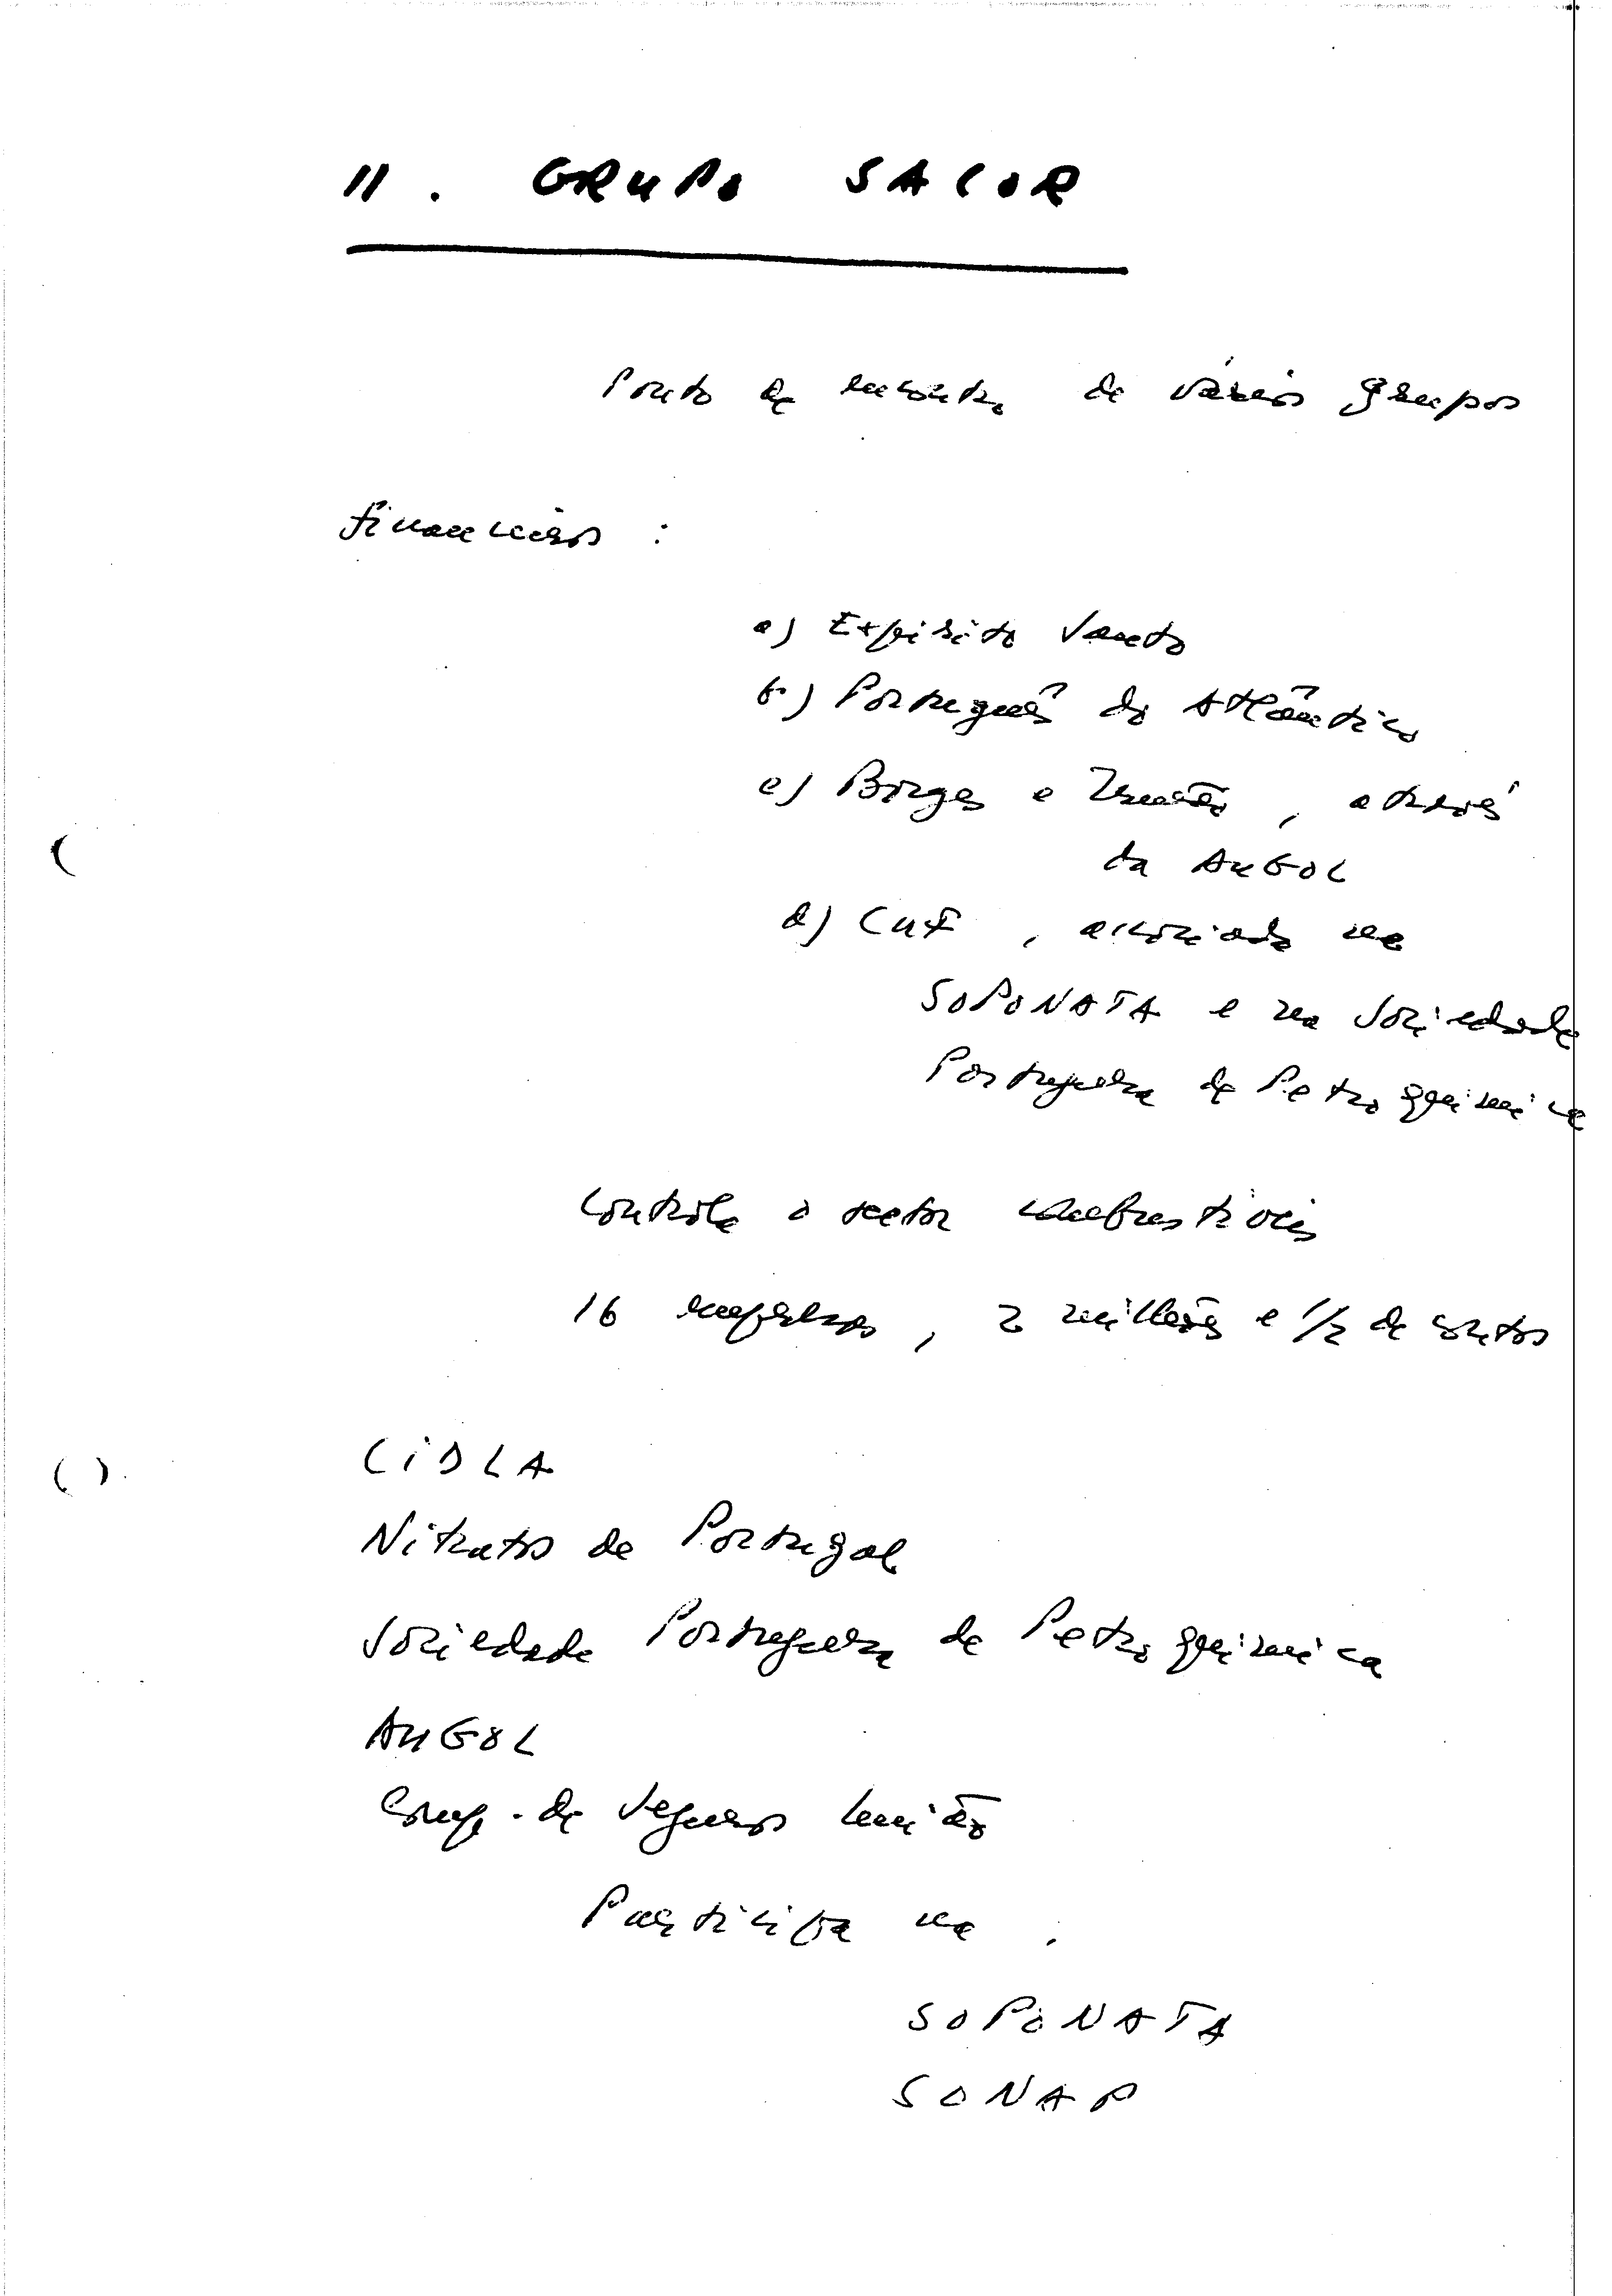 11. GRUPO SACOR
Ponto de encontro de vários grupos
financeiros :
a) Espírito Santo
b) Português do Atlântico
c) Borges e Irmão, através
da ANGOL
d) CUF, associada na
SOPONATA e na Sociedade
Portuguesa de Petroquímica
Controla o sector combustíveis
16 empresas, 2 milhões e 1/2 de contos
CIDLA
Nitratos de Portugal
Sociedade Portuguesa de Petroquímica
ANGOL
Comp. de Seguros União
Participa na :
SOPONATA
SONAP